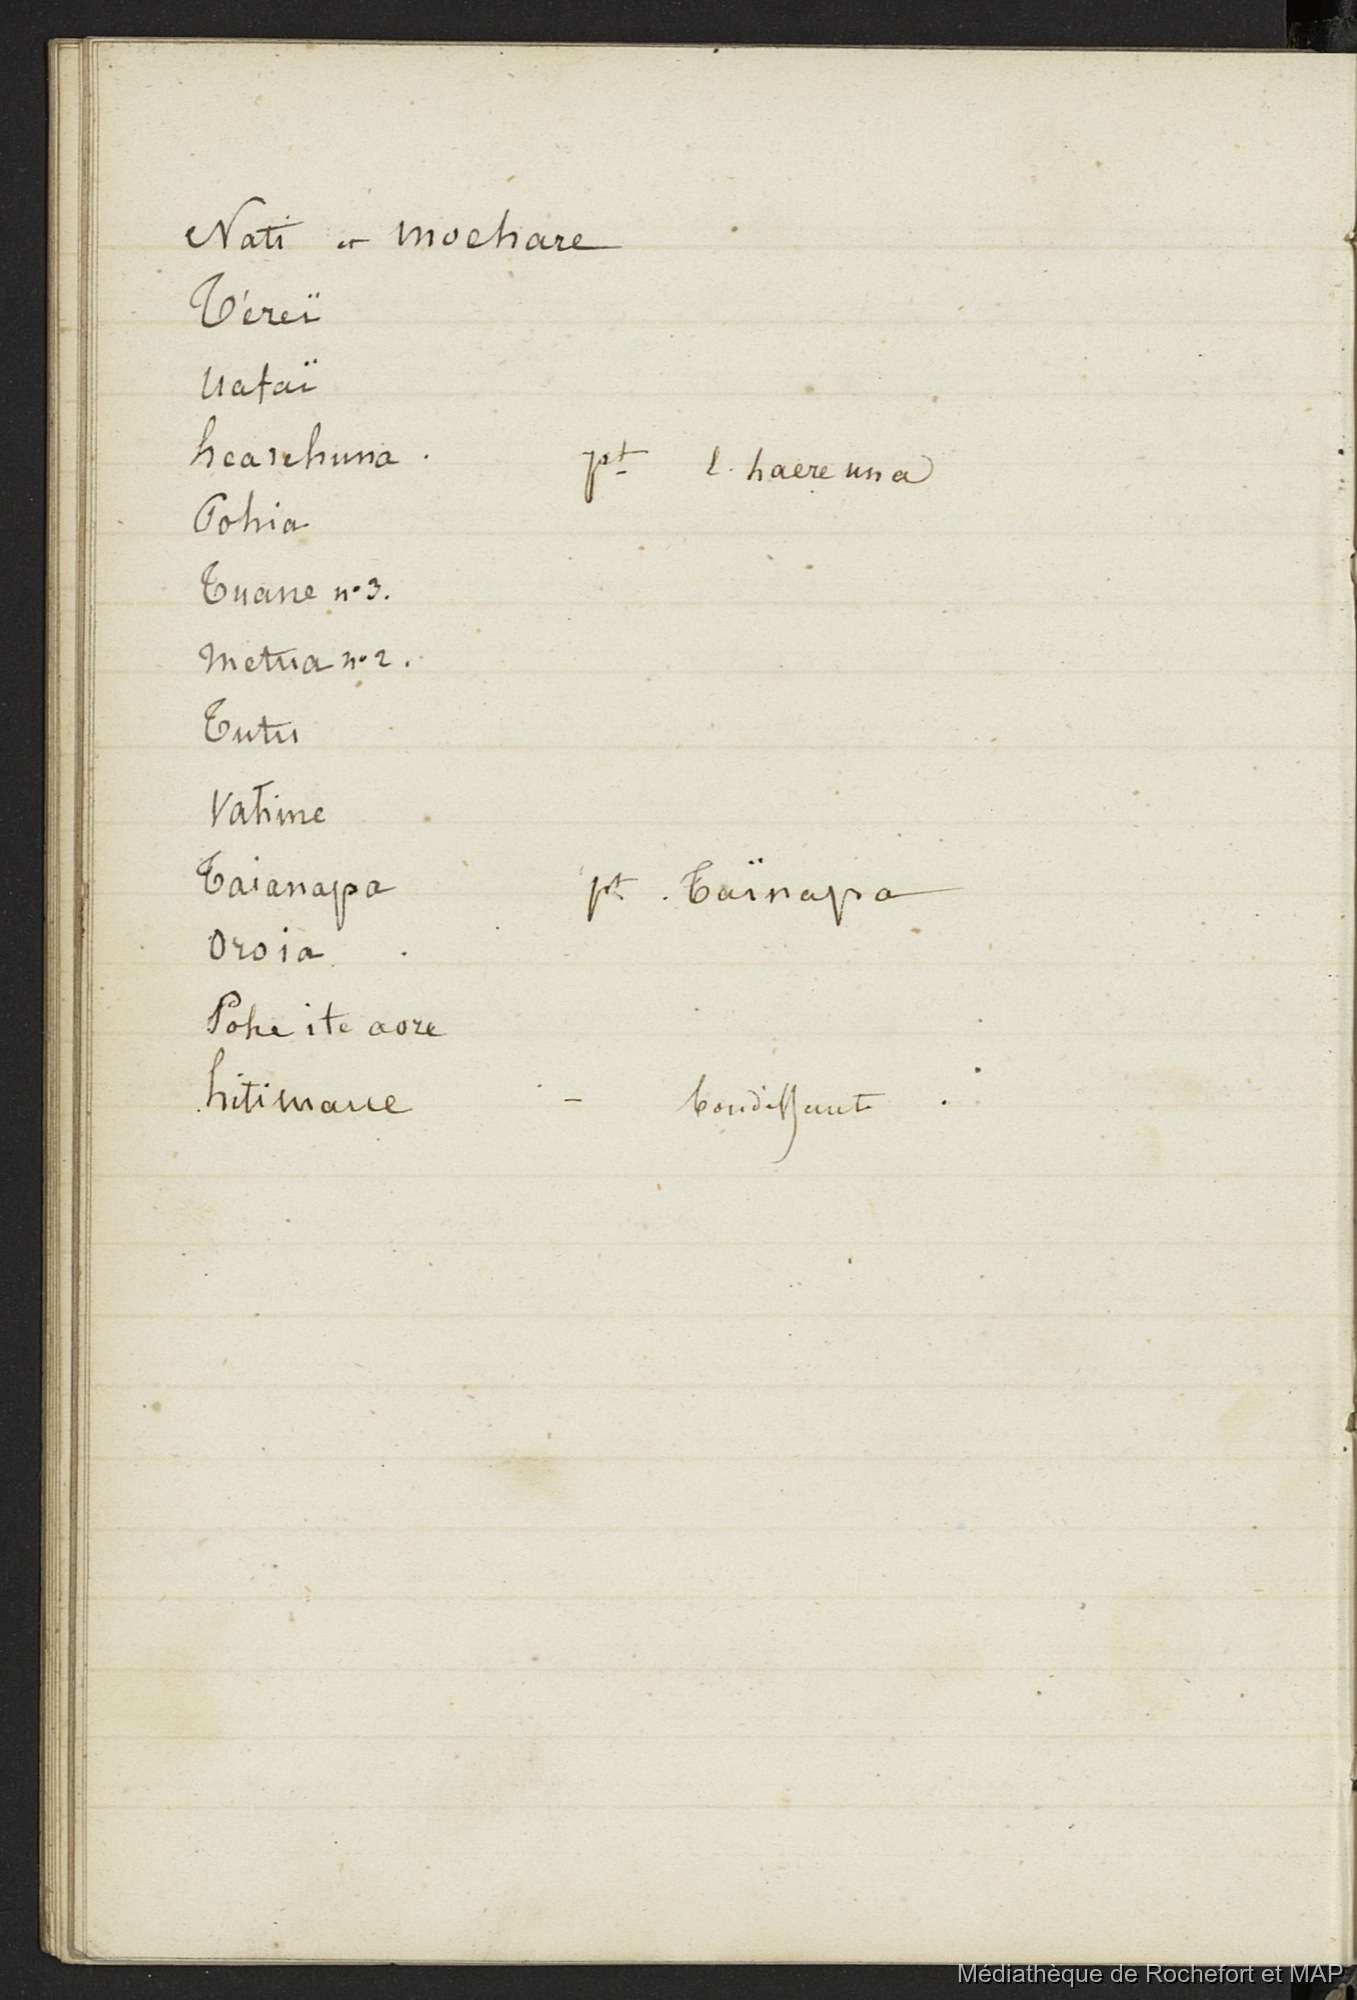 Nati et moehare
Téreï
Uataï
heasehuna . pt l. haere una
Pohia
Tuane n° 3.
Metua n° 2.
Tutu
Vahine
Taianapa pt . Taïnapa
Oroia .
Pohe ite aore
hitimaue –
Médiathèque de Rochefort et MAP